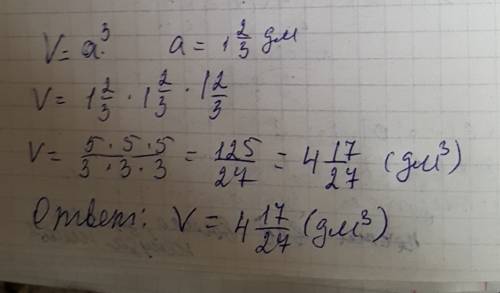 V = a³ a = 1 2/3 дм
V = 1 2/3 · 1 2/3 · 1 2/3
V = 5 · 5 · 5 / 3 · 3 · 3 = 125/27 = 4 17/27 (дм³)
Ответ: V = 4 17/27 (дм³)